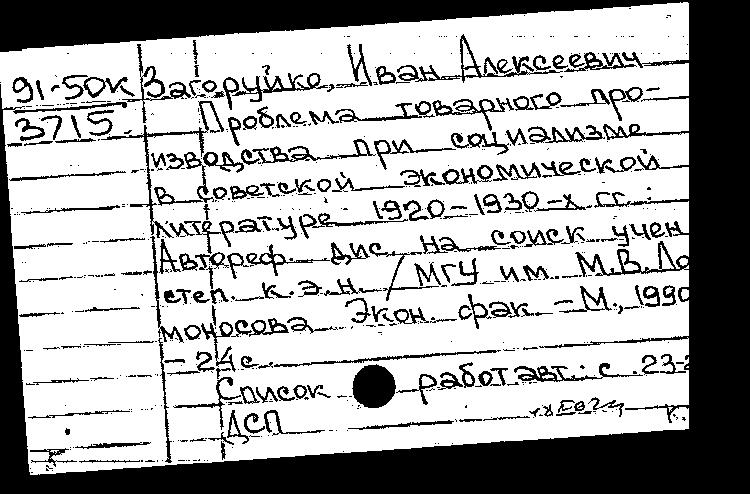 91-50К Загоруйко, Иван Алексеевич
3715 Проблема товарного про-
изводства при социализме
в советской экономической
литературе 1920-1930-х гг.:
Автореф. дис. на соиск учен
степ. к.э.н. / МГУ им. М.В. Ло
моносова Экон. фак. - М., 1990
- 24 с.
Список работ авт.: с. 23-2
ДСП К.